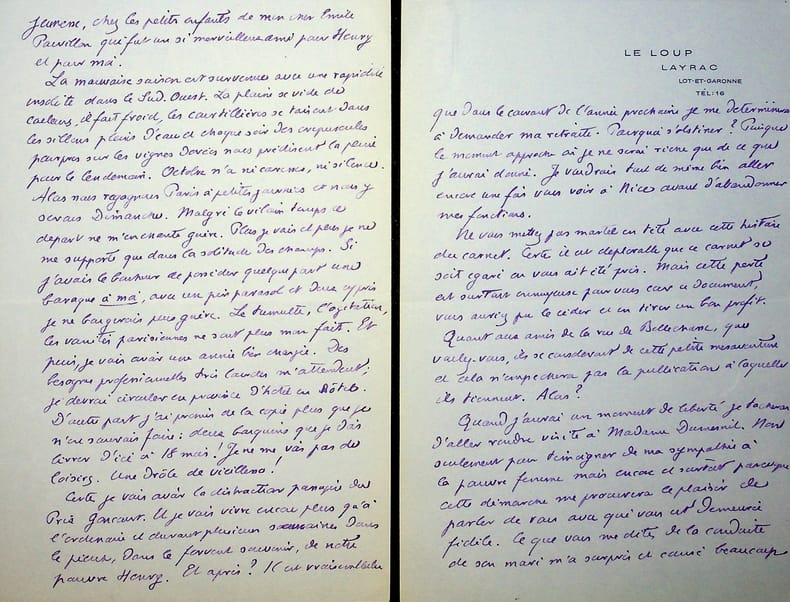 jeunesse, chez les petits enfants de mon cher Emile
Pouvillon qui fut un si merveilleux ami pour Henry
et pour moi.
La mauvaise saison est survenue avec une rapidité
insolite dans le Sud-Ouest. La plaine se vide de
couleurs, il fait froid, les courtilières se taisent dans
les sillons pleins d'eau et chaque soir des crépuscules
pourpres sur les vignes dorées nous prédisent la pluie
pour le lendemain. Octobre n'a ni caresse, ni silence.
Alas nous regagnons Paris à petites journées et nous y
serons Dimanche. Malgré le vilain temps ce
départ ne m'enchante guère. Plus je vais et plus je ne
me supporte que dans la solitude des champs. Si
j'avais le bonheur de posséder quelque part une
baraque à moi, avec un pin parasol et deux cyprès
je ne bougerais plus guère. Le tumulte, l'agitation,
les vanités parisiennes ne sont plus mon fait. Et
puis, je vais avoir une année bien chargée. Des
besognes professionnelles très lourdes m'attendent;
je devrai circuler en province d'hôtel en hôtel.
D'autre part j'ai promis de la copie plus que je
n'en saurais faire: deux bouquins que je dois
livrer d'ici à 18 mois! Je ne me vois pas de
loisirs. Une drôle de vieillesse!
Certes je vais avoir la distraction passagère du
Prix Goncourt. Et je vais vivre encore plus qu'à
l'ordinaire et durant plusieurs semaines dans
le pieux, dans le fervent souvenir, de notre
pauvre Henry. Et après? Il est vraisemblable
LE LOUP
LAYRAC
LOT-ET-GARONNE
TÉL: 16
que dans le courant de l'année prochaine je me déterminerai
à demander ma retraite. Pourquoi s'obstiner? Puisque
le moment approche où je ne serai riche que de ce que
j'aurai donné. Je voudrais tout de même bien aller
encore une fois vous voir à Nice avant d'abandonner
mes fonctions.
Ne vous mettez pas martel en tête avec cette histoire
du carnet. Certes il est déplorable que ce carnet se
soit égaré ou vous ait été pris. Mais cette perte
est surtout ennuyeuse pour vous car ce document,
vous auriez pu le céder et en tirer un bon profit.
Quant aux amis de la rue de Bellechasse, que
voulez-vous, ils se consoleront de cette petite mésaventure
et cela n'empêchera pas la publication à laquelle
ils tiennent. Alas?
Quand j'aurai un moment de liberté je tâcherai
d'aller rendre visite à Madame Dumesnil. Non
seulement pour témoigner de ma sympathie à
la pauvre femme mais encore et surtout parce que
cette démarche me procurera le plaisir de
parler de vous avec qui vous est demeuré
fidèle. Ce que vous me dites de la conduite
de son mari m'a surpris et causé beaucoup